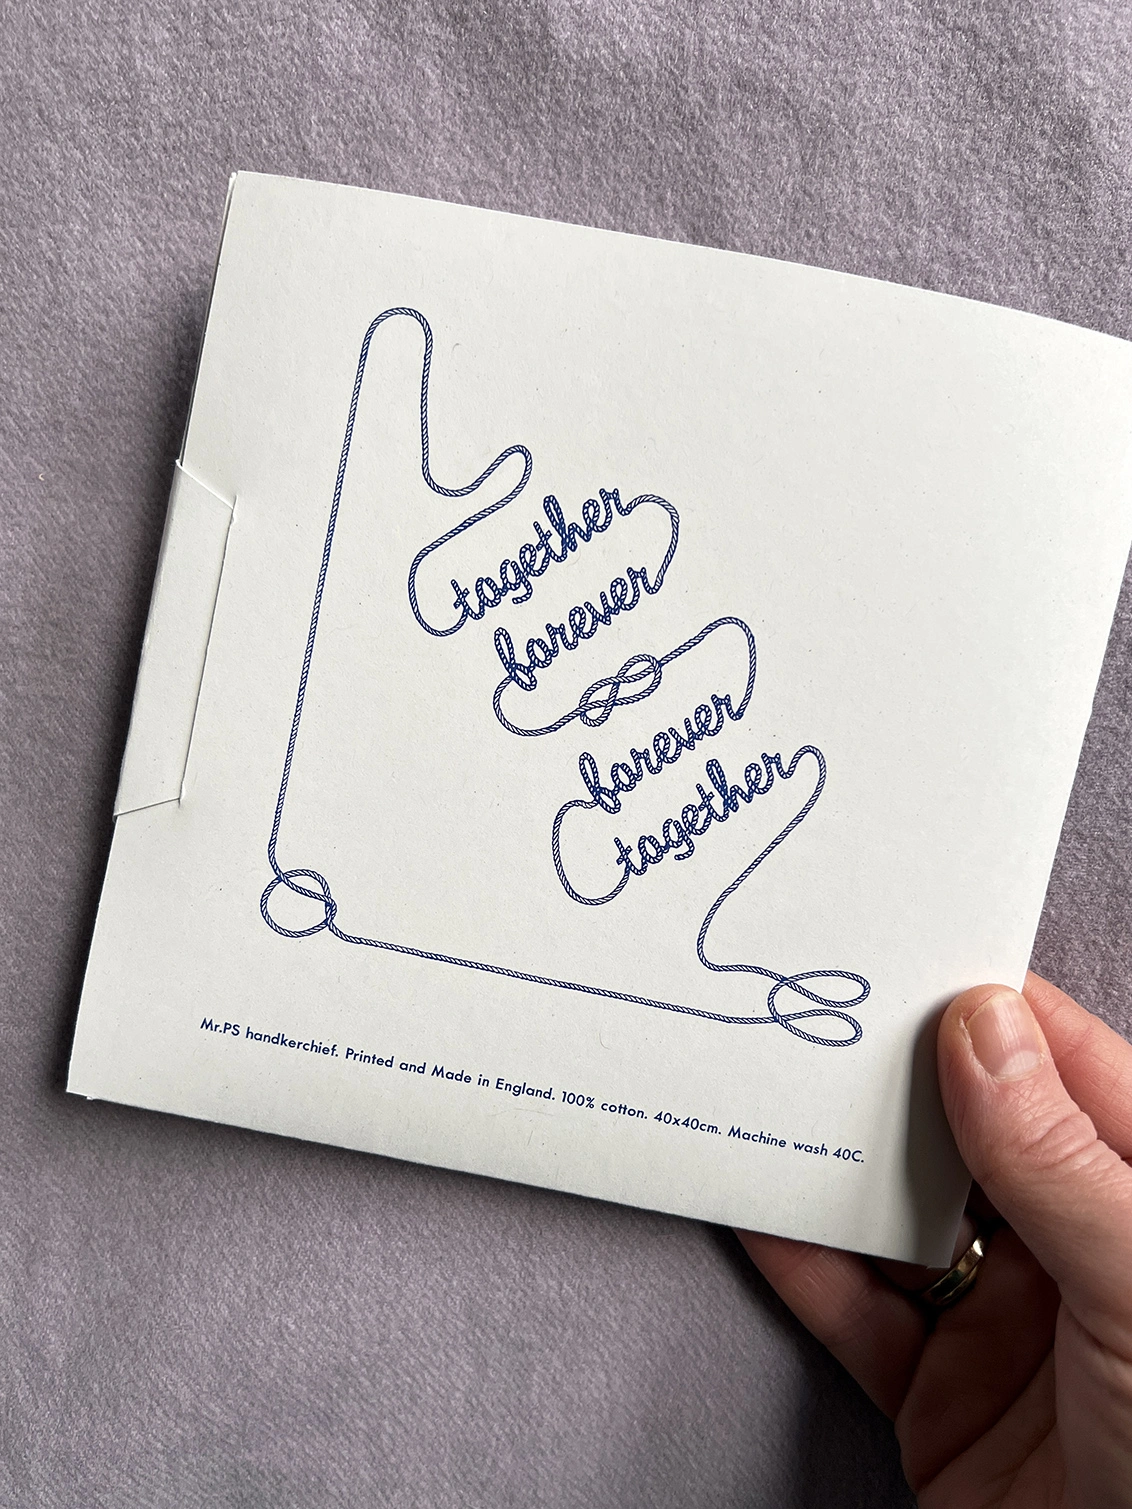 together
forever
forever
together
Mr.PS handkerchief. Printed and Made in England. 100% cotton. 40x40cm. Machine wash 40C.